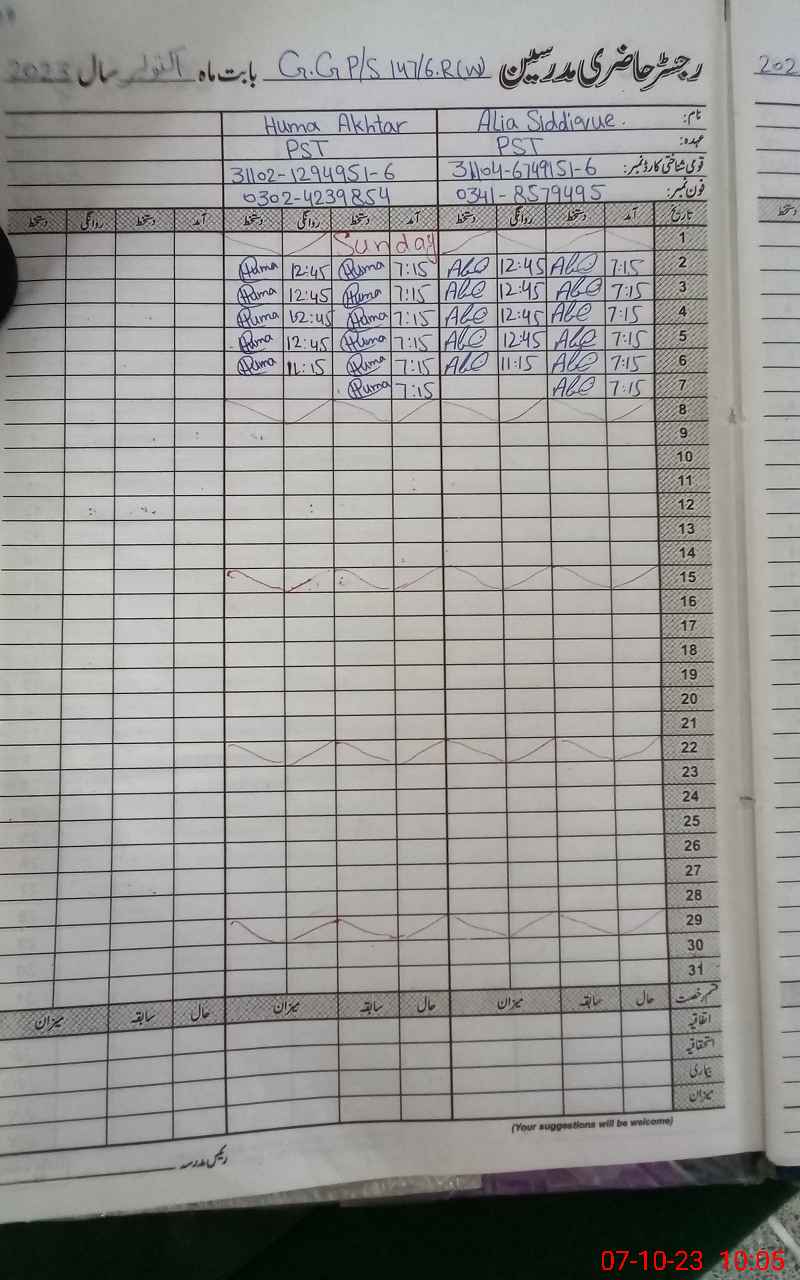 رجسٹر حاضری مدرسین G.G P/S 147/6.R(W) بابت ماہ اکتوبر سال 2023
202
نام: Alia Siddique. Huma Akhtar
عہدہ: PST PST
قومی شناختی کارڈ نمبر: 31104-6749151-6 31102-1294951-6
فون نمبر: 0341-8579495 0302-4239854
تاریخ آمد دستخط روانگی دستخط آمد دستخط روانگی دستخط آمد دستخط روانگی دستخط
دستخط
1 Sunday
2 7:15 12:45 7:15 Huma 12:45 Huma
3 7:15 12:45 7:15 Huma 12:45 Huma
4 7:15 12:45 7:15 Huma 12:45 Huma
5 7:15 12:45 7:15 Huma 12:45 Huma
6 7:15 11:15 7:15 Huma 11:15 Huma
7 7:15 7:15 Huma
8
9
10
11
12
13
14
15
16
17
18
19
20
21
22
23
24
25
26
27
28
29
30
31
قسم رخصت حال سابقہ میزان حال سابقہ میزان حال سابقہ میزان
اتفاقیہ
استحقاقیہ
بیماری
میزان
(Your suggestions will be welcome)
رئیس مدرسہ
07-10-23 10:05